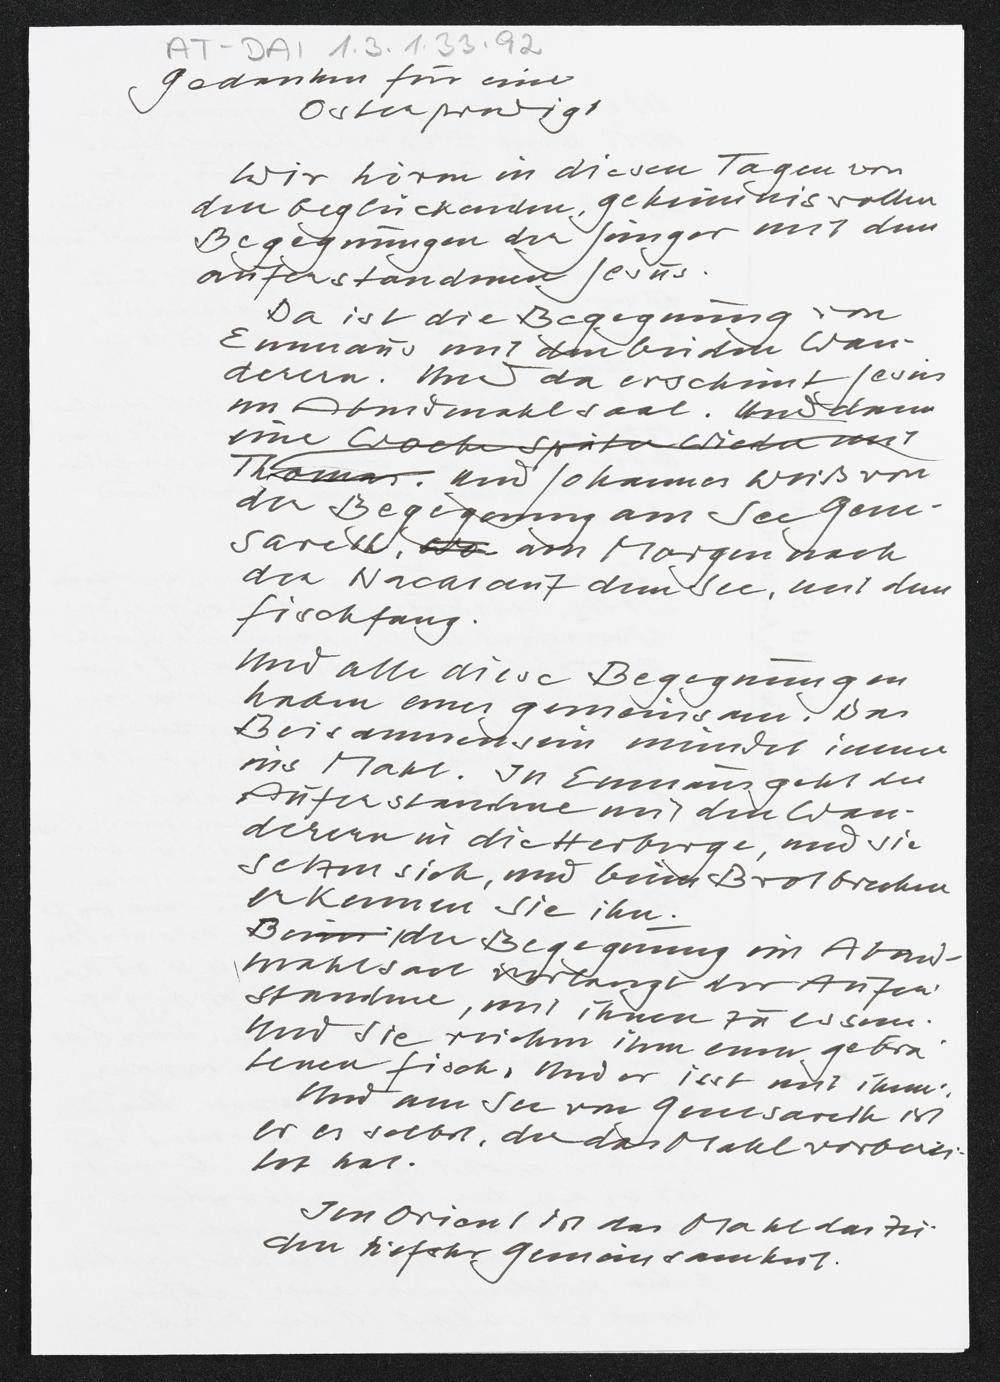 AT-DAI 1.3.1.33.92
Gedanken für eine
Osterpredigt
Wir hören in diesen Tagen von
den beglückenden, geheimnisvollen
Begegnungen der Jünger mit dem
auferstandenen Jesus.
Da ist die Begegnung von
Emmaus mit den beiden Wan-
derern. Und da erscheint Jesus
im Abendmahlsaal. Und dann
eine Woche später wieder mit
Thomas. Und Johannes weiß von
der Begegnung am See Gene-
sareth, wo am Morgen nach
der Nacht auf dem See, mit dem
Fischfang.
Und alle diese Begegnungen
haben eines gemeinsam. Das
Beisammensein mündet immer
ins Mahl. In Emmaus geht der
Auferstandene mit den Wan-
derern in die Herberge, und sie
setzen sich, und beim Brotbrechen
erkennen sie ihn.
Bei der Begegnung im Abend-
mahlsaal verlangt der Aufer-
standene, mit ihnen zu essen.
Und sie reichen ihm einen gebra-
tenen Fisch, und er isst mit ihnen.
Und am See von Genesareth ist
er es selbst, der das Mahl vorberei-
tet hat.
Im Orient ist das Mahl das Zei-
chen tiefster Gemeinsamkeit.